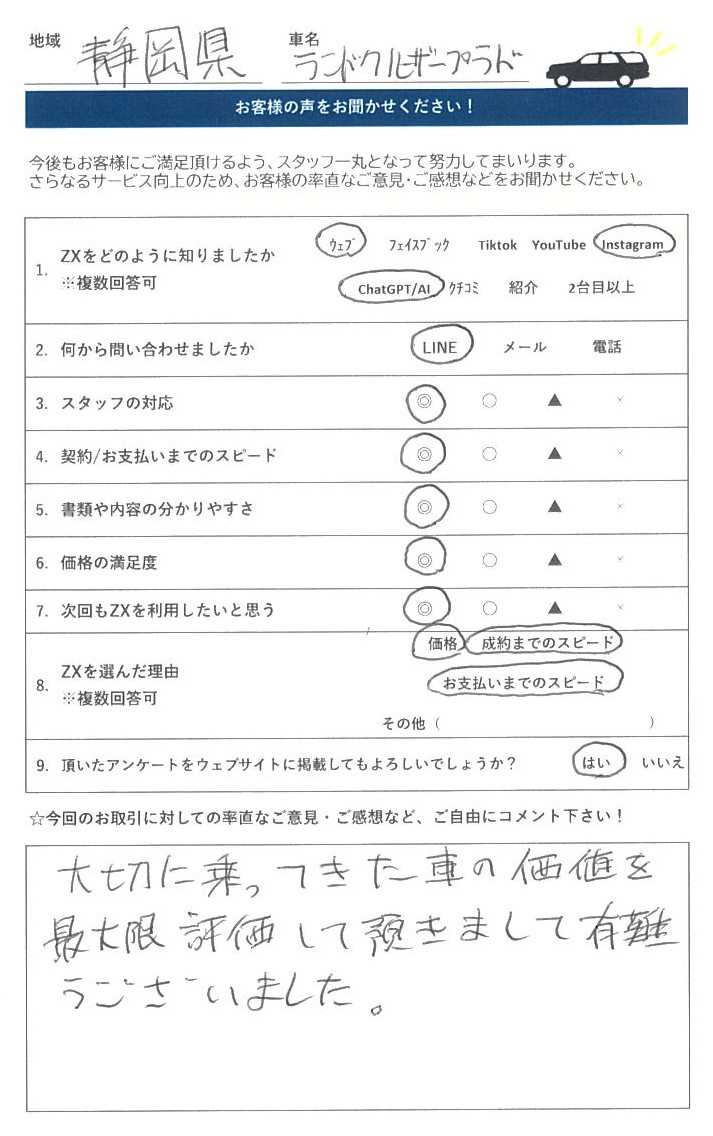 地域 静岡県 車名 ランドクルーザープラド
お客様の声をお聞かせください！
今後もお客様にご満足頂けるよう、スタッフ一丸となって努力してまいります。
さらなるサービス向上のため、お客様の率直なご意見・ご感想などをお聞かせください。
1. ZXをどのように知りましたか
※複数回答可
ウェブ フェイスブック Tiktok YouTube Instagram
ChatGPT/AI クチコミ 紹介 2台目以上
2. 何から問い合わせましたか LINE メール 電話
3. スタッフの対応 ◎ ○ ▲ ×
4. 契約/お支払いまでのスピード ◎ ○ ▲ ×
5. 書類や内容の分かりやすさ ◎ ○ ▲ ×
6. 価格の満足度 ◎ ○ ▲ ×
7. 次回もZXを利用したいと思う ◎ ○ ▲ ×
8. ZXを選んだ理由
※複数回答可
価格 成約までのスピード
お支払いまでのスピード
その他（ ）
9. 頂いたアンケートをウェブサイトに掲載してもよろしいでしょうか？ はい いいえ
☆今回のお取引に対しての率直なご意見・ご感想など、ご自由にコメント下さい！
大切に乗ってきた車の価値を
最大限評価して頂きまして有難
うございました。